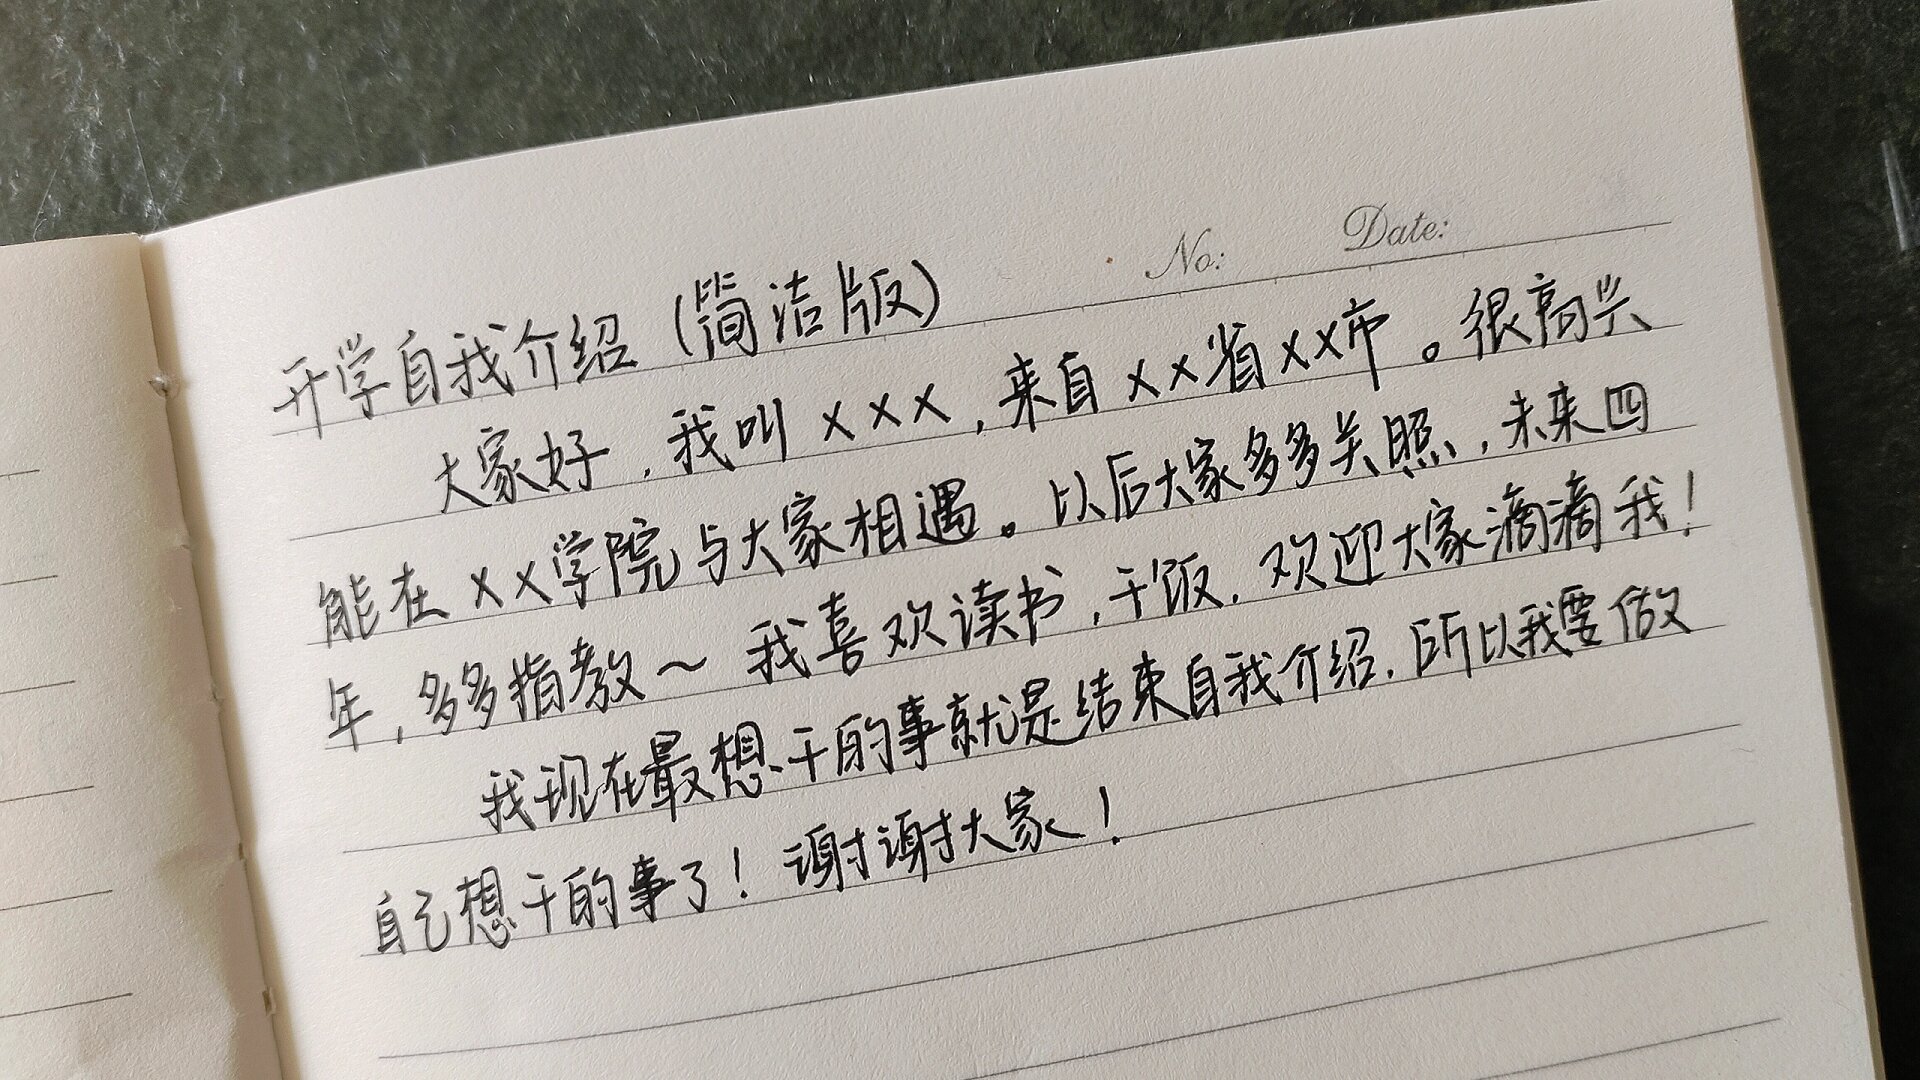 No: Date:
开学自我介绍（简洁版）
大家好，我叫×××，来自××省××市。很高兴
能在××学院与大家相遇。以后大家多多关照，未来四
年，多多指教～我喜欢读书，干饭，欢迎大家滴滴我！
我现在最想干的事就是结束自我介绍，所以我要做
自己想干的事了！谢谢大家！